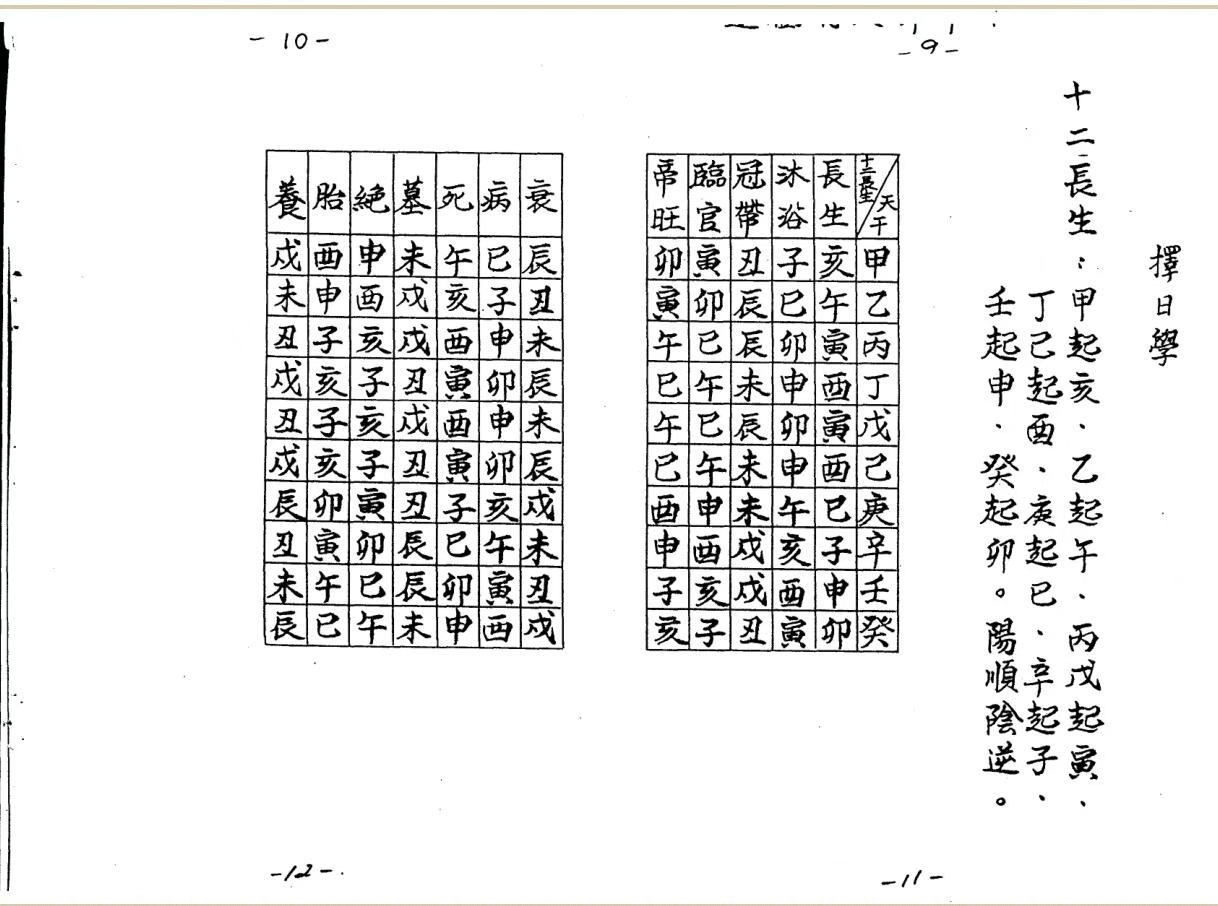 -9-
-10-
擇日學
十二長生：甲起亥、乙起午、丙戊起寅、
丁己起酉、庚起巳、辛起子、
壬起申、癸起卯。陽順陰逆。
十二長生 天干 甲 乙 丙 丁 戊 己 庚 辛 壬 癸
長生 亥 午 寅 酉 寅 酉 巳 子 申 卯
沐浴 子 巳 卯 申 卯 申 午 亥 酉 寅
冠帶 丑 辰 辰 未 辰 未 未 戌 戌 丑
臨官 寅 卯 巳 午 巳 午 申 酉 亥 子
帝旺 卯 寅 午 巳 午 巳 酉 申 子 亥
衰 辰 丑 未 辰 未 辰 戌 未 丑 戌
病 巳 子 申 卯 申 卯 亥 午 寅 酉
死 午 亥 酉 寅 酉 寅 子 巳 卯 申
墓 未 戌 戌 丑 戌 丑 丑 辰 辰 未
絕 申 酉 亥 子 亥 子 寅 卯 巳 午
胎 酉 申 子 亥 子 亥 卯 寅 午 巳
養 戌 未 丑 戌 丑 戌 辰 丑 未 辰
-11-
-12-.